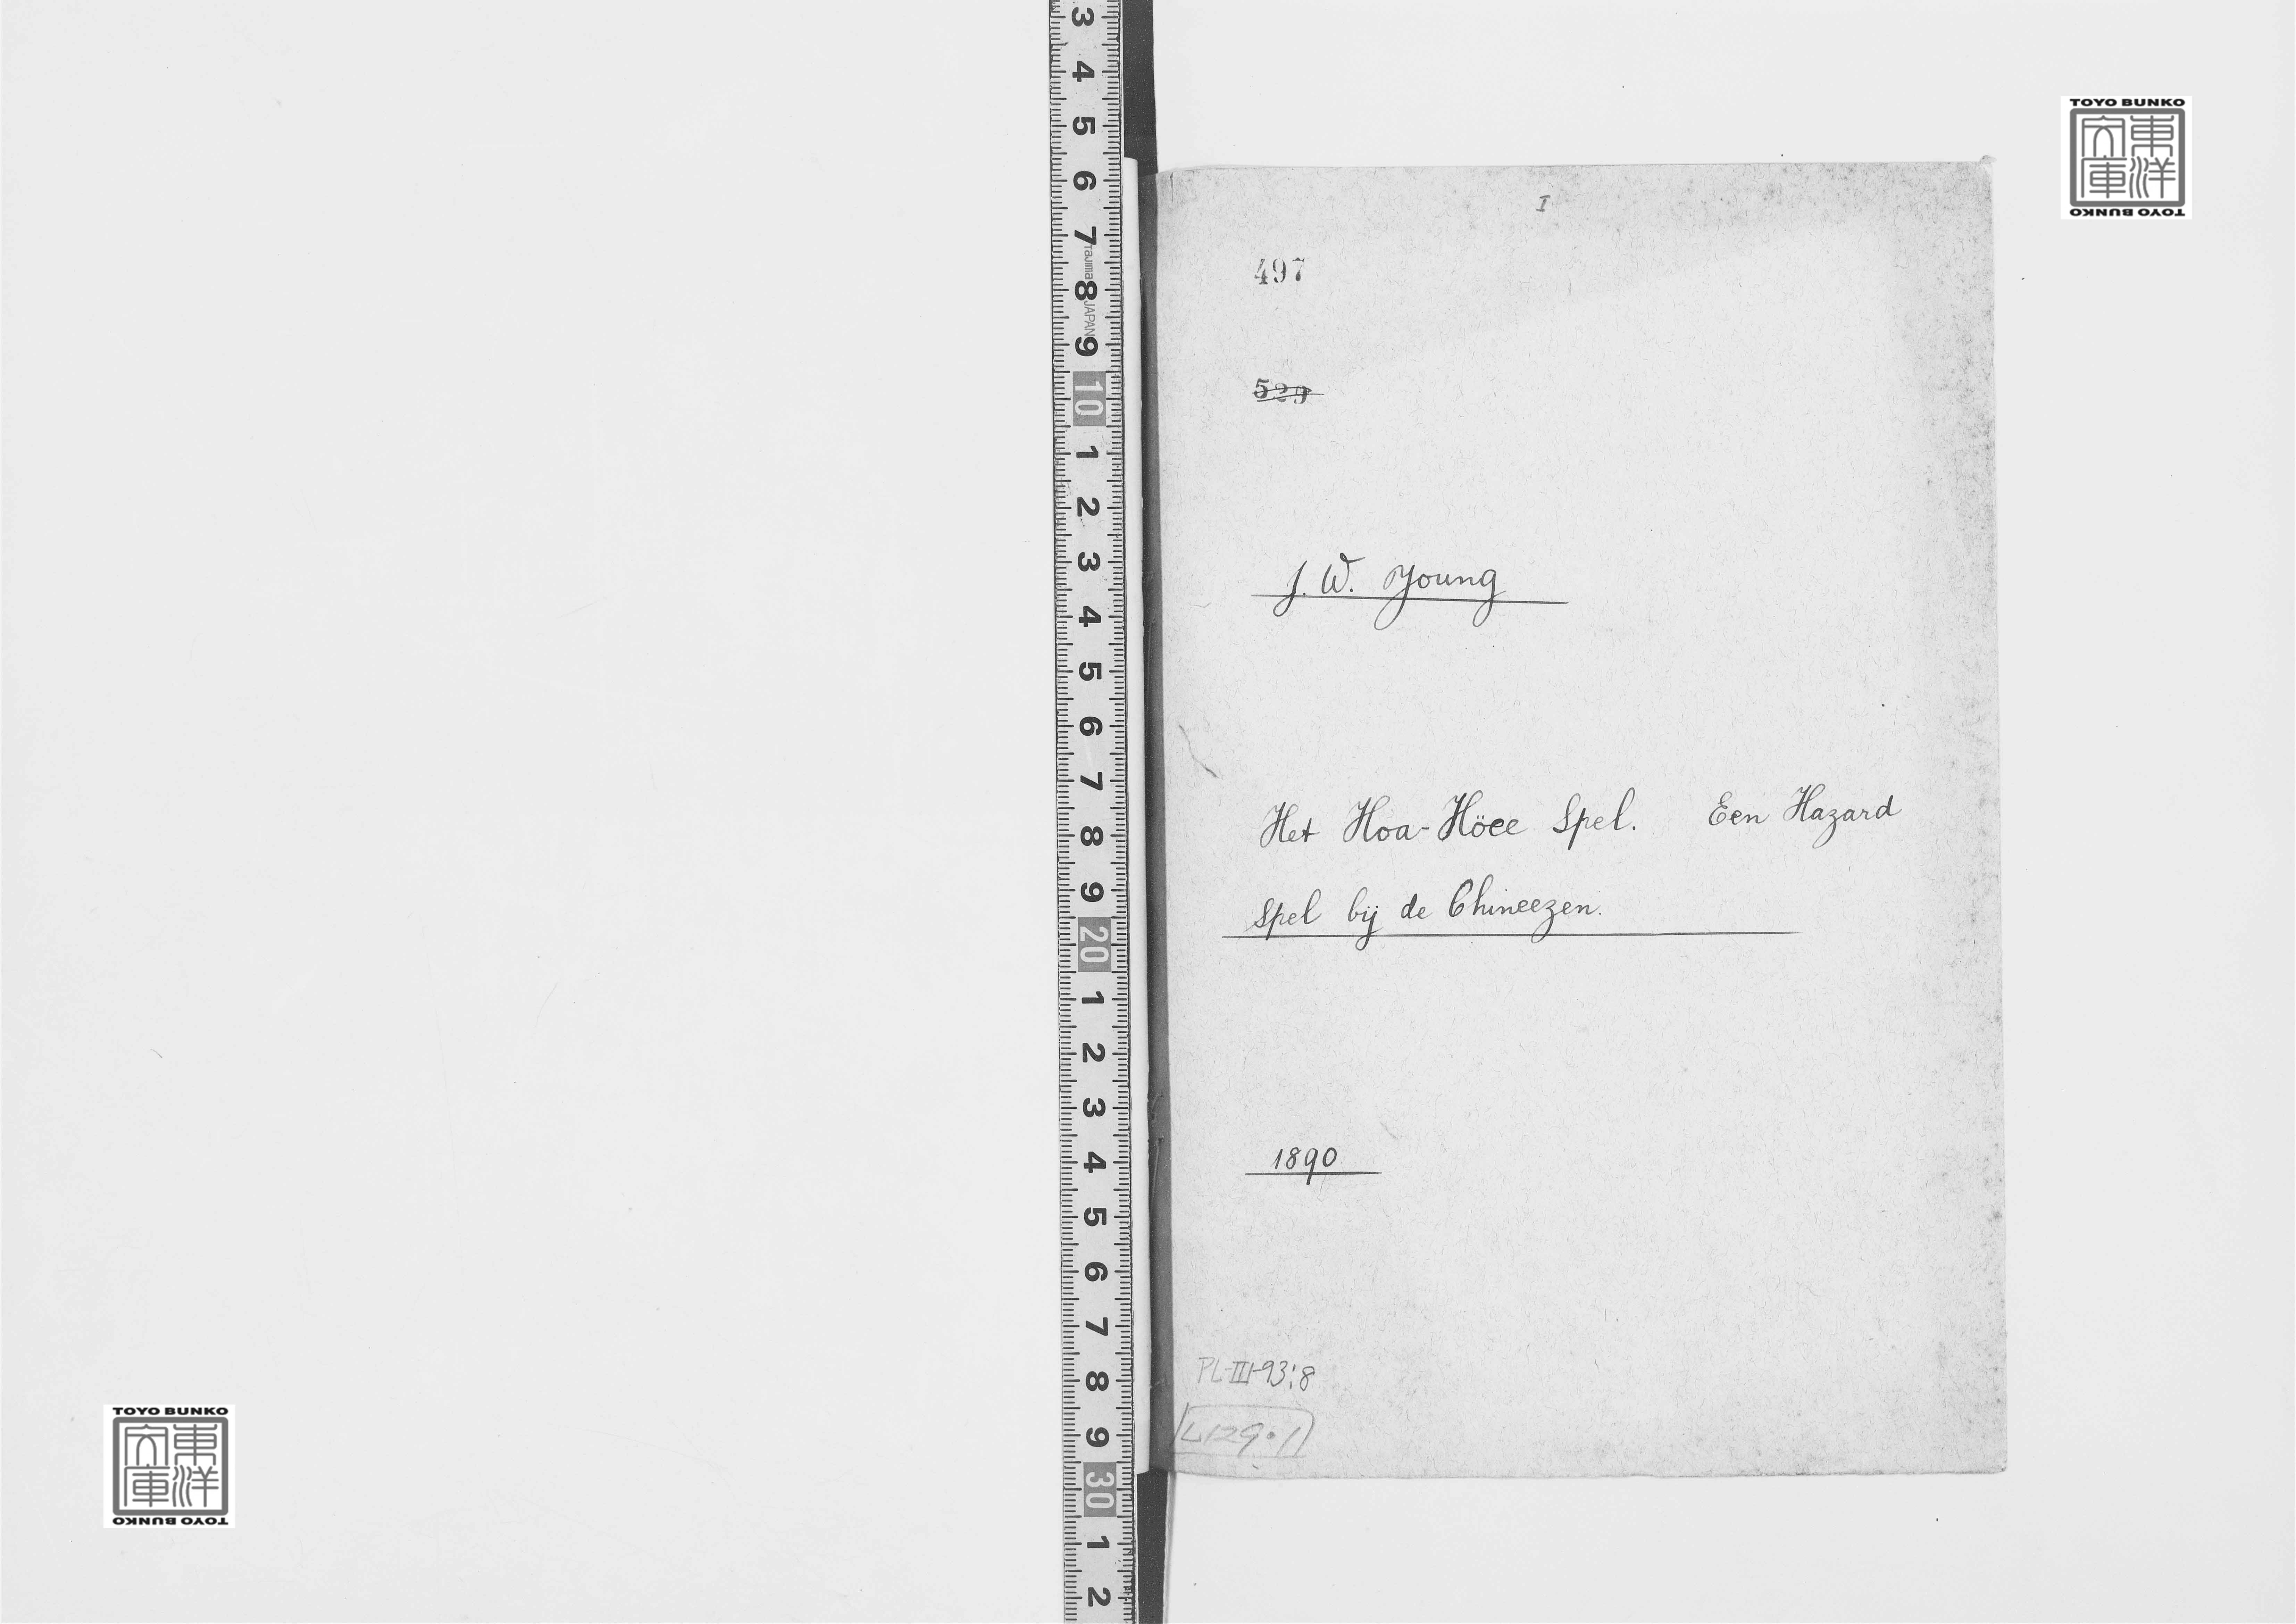 I
497
529
J. W. Young
Het Hoa-Höee Spel. Een Hazard
spel bij de Chineezen.
1890
PL-III-93:8
L129.1
TOYO BUNKO
東洋
文庫
TOYO BUNKO
TOYO BUNKO
東洋
文庫
TOYO BUNKO
3
4
5
6
7
Tajima
8
JAPAN
9
10
1
2
3
4
5
6
7
8
9
20
1
2
3
4
5
6
7
8
9
30
1
2